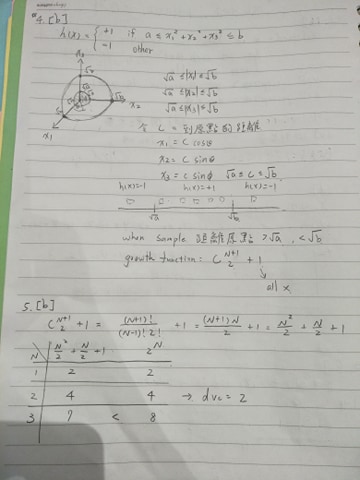 4. [b]
h(x) = { +1 if a ≤ x₁² + x₂² + x₃² ≤ b
-1 other
x₃
√b
√a ≤ |x₁| ≤ √b
√a ≤ |x₂| ≤ √b
√a ≤ |x₃| ≤ √b
x₂
x₁
令 C = 到原點的距離
x₁ = C cosθ
x₂ = C sinθ
x₃ = C sinϕ √a ≤ C ≤ √b
h(x)=-1 h(x)=+1 h(x)=-1
√a √b
when sample 距離原點 > √a, < √b
growth function: C^{N+1}_2 + 1
all x
5. [b]
C^{N+1}_2 + 1 = (N+1)!/((N-1)! 2!) + 1 = (N+1)N/2 + 1 = N²/2 + N/2 + 1
N N²/2 + N/2 + 1 2^N
1 2 2
2 4 4 → dvc = 2
3 7 < 8